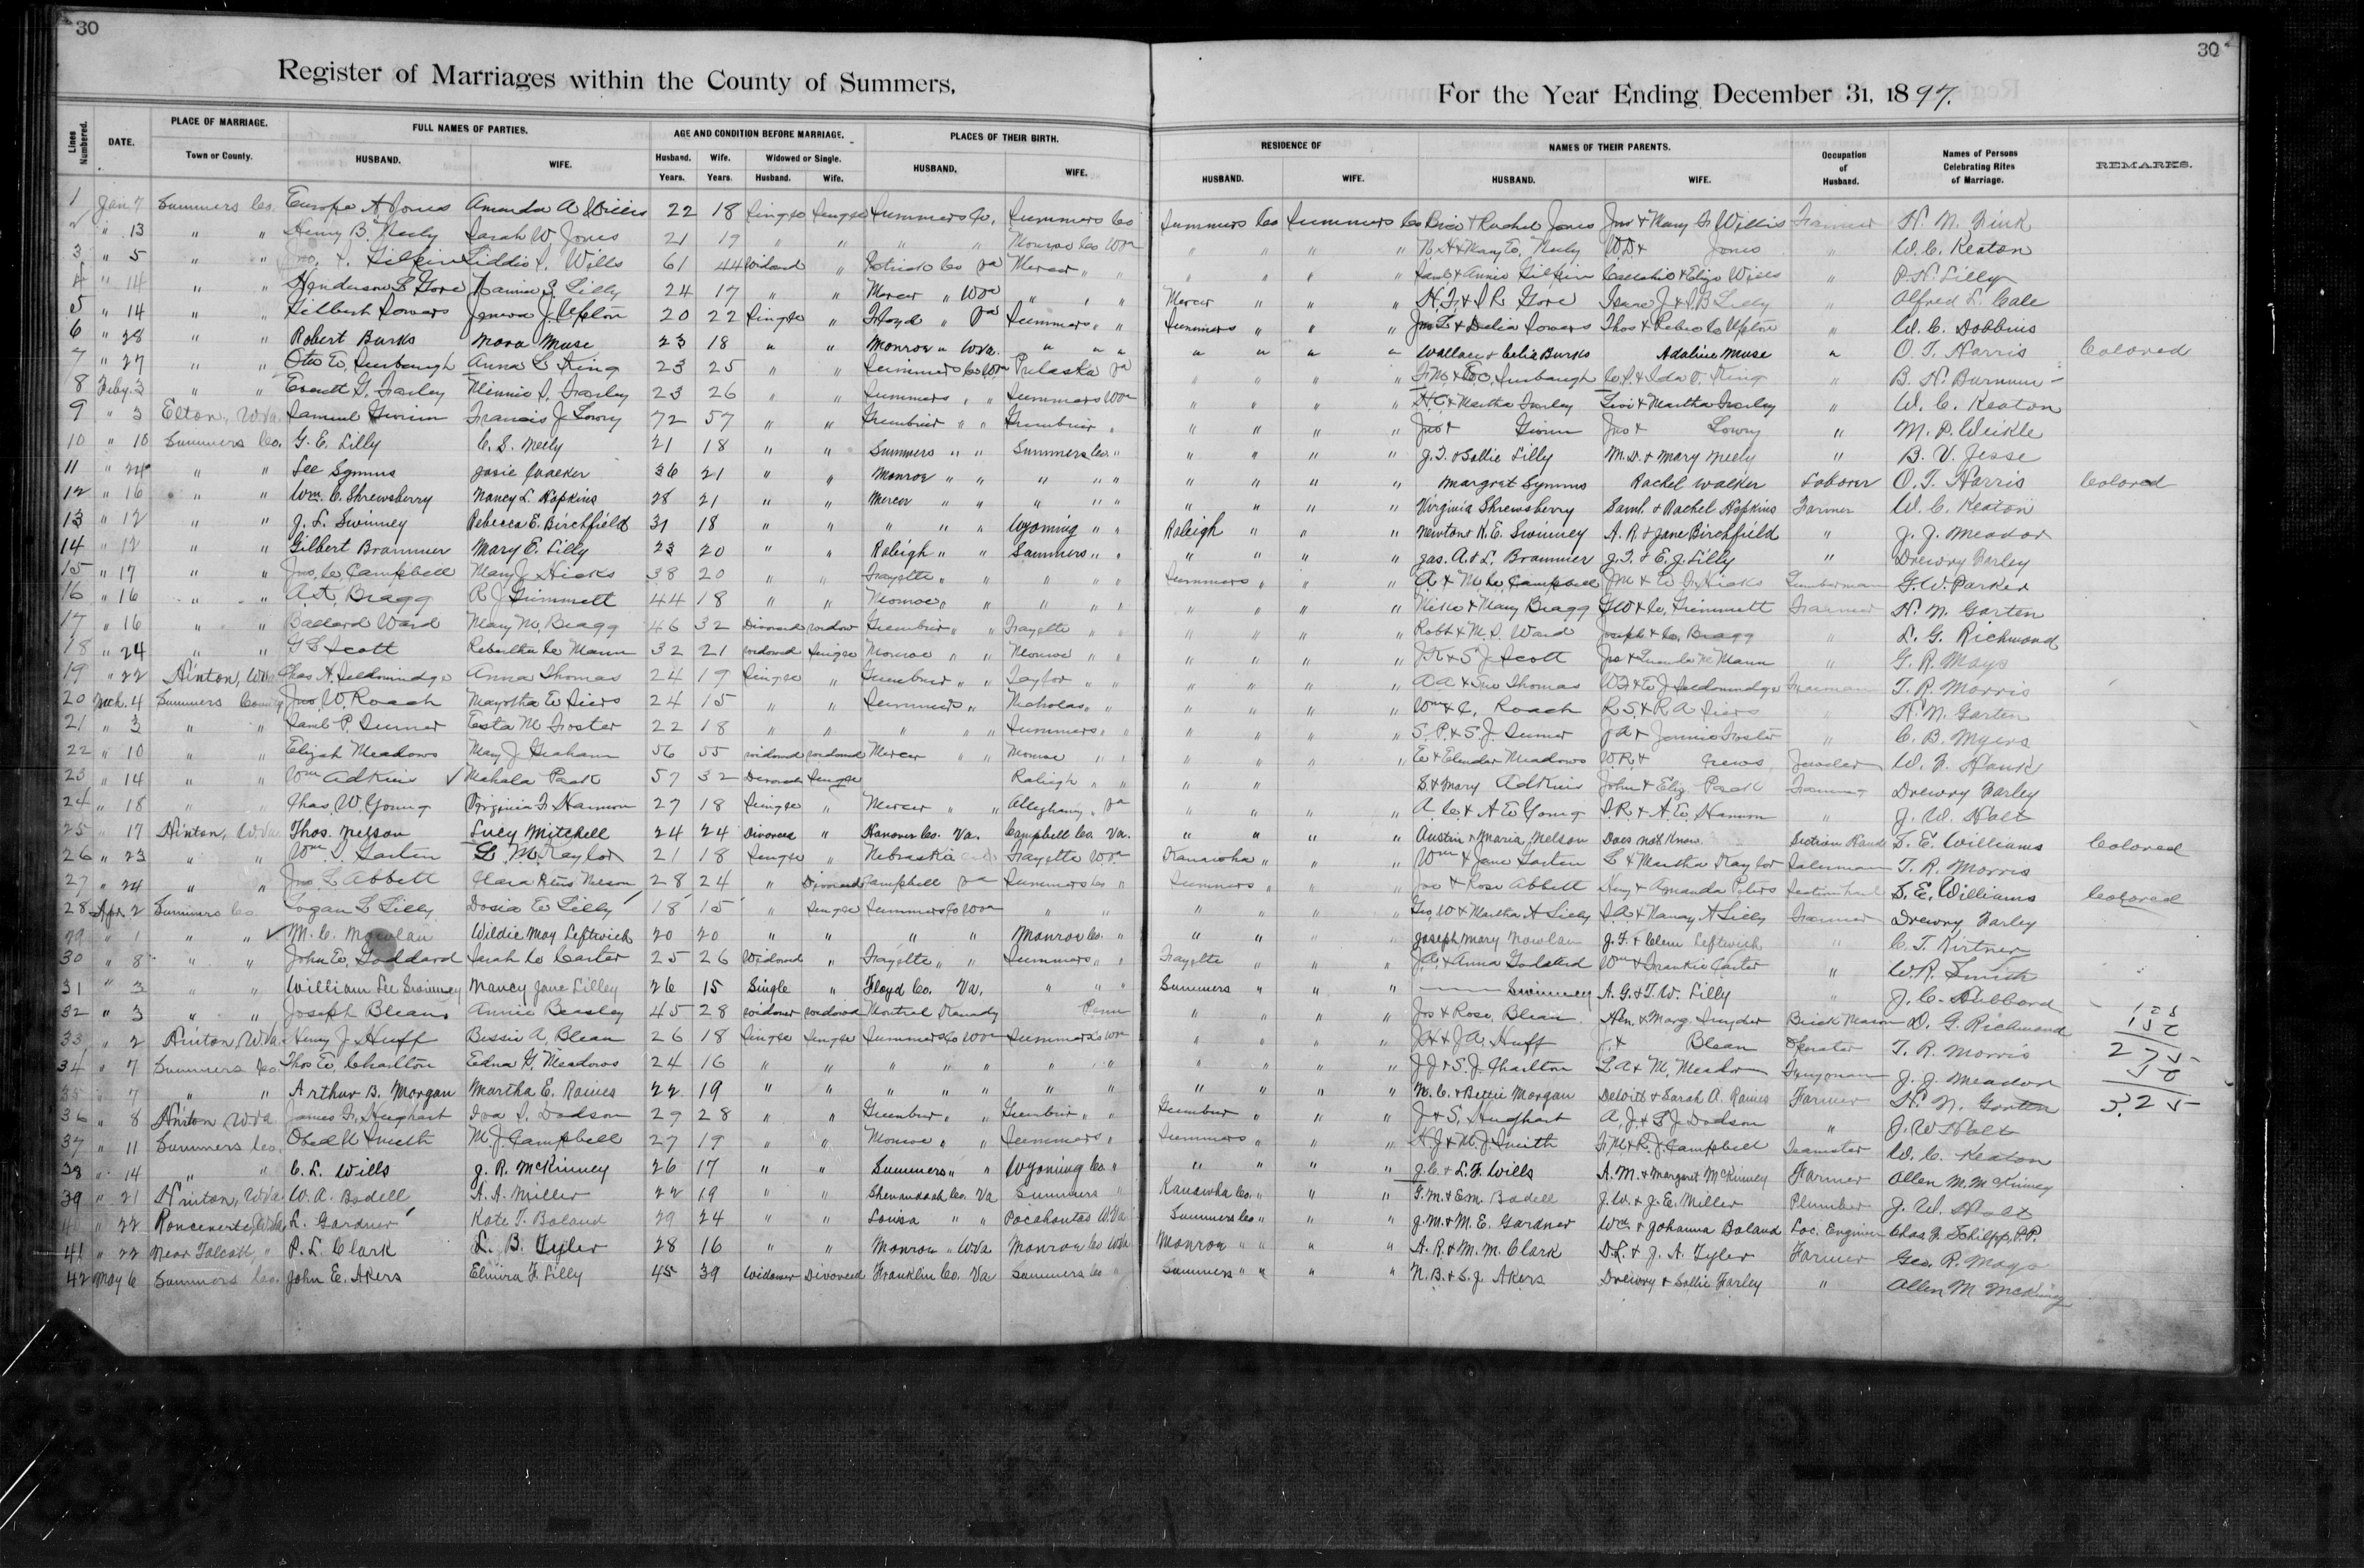 30
30
Register of Marriages within the County of Summers.
For the Year Ending December 31, 1897.
Lines Numbered. DATE. PLACE OF MARRIAGE. Town or County. FULL NAMES OF PARTIES. HUSBAND. WIFE. AGE AND CONDITION BEFORE MARRIAGE. Husband. Years. Wife. Years. Widowed or Single. Husband. Wife. PLACES OF THEIR BIRTH. HUSBAND. WIFE. RESIDENCE OF HUSBAND. WIFE. NAMES OF THEIR PARENTS. HUSBAND. WIFE. Occupation of Husband. Names of Persons Celebrating Rites of Marriage. REMARKS.
1 Jan 7 Summers Co. Europe A Jones Amanda A Willis 22 18 Single Single Summers Co. Summers Co Summers Co Summers Co & Rachel Jones Jno & Mary F. Willis Farmer H. N. Fink
2 " 13 " " Henry B. Neely Sarah W. Jones 21 19 " " " " Monroe Co Wva " " " " & Mary E. Neely W.D & Jones " W. C. Keaton
3 " 5 " " Jno. Gilpin Liddie S. Wills 61 44 Widowed " Patrick Co Va Mercer " " " " " " Saml & Annie Gilpin & Eliza Wills " P. H. Lilly
4 " 14 " " Henderson L Gore Nannie S. Lilly 24 17 " " Mercer " Wva " " " Mercer " " " H. F. & S R Gore Isaac J & S B Lilly " Alfred L. Cale
5 " 14 " " Gilbert Sowers Geneva J. Upton 20 22 Single " Floyd " Va Summers " " Summers " " " Jno L & Delia Sowers Thos & Upton " W. C. Dobbins
6 " 28 " " Robert Burks Nora Muse 23 18 " " Monroe " Wva. " " " " " " " Wallace & Celia Burks Adaline Muse " O. T. Harris Colored
7 " 27 " " Otto E. Surbaugh Anna L King 23 25 " " Summers Co Wva Pulaska Va " " " " F. M & Surbaugh & Ida V. King " B. H. Burnum
8 Feby. 3 " " Everett G. Farley Minnie S. Farley 23 26 " " Summers " " Summers Wva " " " " H. C. & Martha Farley Levi & Martha Farley " W. C. Keaton
9 " 3 Elton, W.Va. Samuel Gwinn Francis J. Lowry 72 57 " " Greenbrier " " Greenbrier " " " " " Jno & Gwinn Jno & Lowry " M. P. Weikle
10 " 10 Summers Co. G. E. Lilly C. S. Neely 21 18 " " Summers " " Summers Co. " " " " " J. T. & Sallie Lilly M. D. & Mary Neely " B. V. Jesse
11 " 24 " " Lee Symms Josie Walker 36 21 " " Monroe " " " " " " " " " Margret Symms Rachel Walker Laborer O. T. Harris Colored
12 " 16 " " Wm. C. Shrewsberry Nancy L. Hopkins 28 21 " " Mercer " " " " " " " " " Virginia Shrewsberry Saml. & Rachel Hopkins Farmer W. C. Keaton
13 " 12 " " J. L. Swinney Rebecca E. Birchfield 31 18 " " " " " Wyoming " " Raleigh " " " Newton & K. E. Swinney A. R. & Jane Birchfield " J. J. Meador
14 " 12 " " Gilbert Brammer Mary E. Lilly 23 20 " " Raleigh " " Summers " " " " " " Jas. A. & L. Brammer J. T. & E. J. Lilly " Drewry Farley
15 " 17 " " Jno. C. Campbell Mary J Hicks 38 20 " " Fayette " " " " " Summers " " " A. & M C. Campbell JM & E. F. Hicks Lumberman G. W. Parker
16 " 16 " " A. A. Bragg R J Grimmett 44 18 " " Monroe " " " " " " " " " & Mary Bragg GW & C. Grimmett Farmer H. N. Garten
17 " 16 " " Ballard Ward Mary M. Bragg 46 32 Divorced Widow Greenbrier " " Fayette " " " " " " Robt & M. S. Ward Joseph & C. Bragg " L. G. Richmond
18 " 24 " " G L Scott Rebertha C Mann 32 21 Widowed Single Monroe " " Monroe " " " " " " & S J Scott Jno & M Mann " G. R. Mays
19 " 22 Hinton, W.Va Chas A. Anna Thomas 24 19 Single " Greenbrier " " Taylor " " " " " " & Thomas W. F & E. J Fireman T. R. Morris
20 Mch. 4 Summers County Jno. W. Roach E Siers 24 15 " " Summers " Nicholas " " " " " " Wm & C. Roach R. S. & R. A Siers " H. N. Garten
21 " 3 " " Saml P. Sumner Esta M. Foster 22 18 " " " " " Summers " " " " " " S. P. & S. J. Sumner & Jennie Foster " C. B. Myers
22 " 10 " " Elijah Meadows May J. Graham 56 55 widowed widowed Mercer " " Monroe " " " " " " E. & Meadows W. R. & Crews Jeweler W. F. Hank
23 " 14 " " Wm Adkins ✓ Mahala Pack 57 32 Divorced Single Raleigh " " " " S. & Mary Adkins John & Eliz. Pack Farming Drewry Farley
24 " 18 " " Chas. W. Young Virginia F. Harmon 27 18 Single " Mercer " " Alleghany " Va " " " " A. C. & A E Young S. R. & A. E. Harmon " J. W. Holt
25 " 17 Hinton, W.Va Thos. Nelson Lucy Mitchell 24 24 Divorced " Hanover Co. Va. Campbell Co. Va. " " " " Austin & Maria Nelson Does not Know Section Hand S. E. Williams Colored
26 " 23 " " Wm. S. Garten L. M. Kaylor 21 18 Single " Nebraska Fayette Wva Kanawha " " " Wm & Jane Garten L & Martha Kaylor Salesman T. R. Morris
27 " 24 " " Jno. L Abbett Clara Peters Nelson 28 24 " Divorced Campbell Va Summers Co " Summers " " " Jno & Rose Abbett Henry & Amanda Peters Section hand S. E. Williams Colored
28 Apr. 2 Summers Co Logan L Lilly Dosia E Lilly 18 15 " Single Summers Co Wva " " " " " " Geo. W & Martha A Lilly S. A & Nancy A Lilly Farmer Drewry Farley
29 " 1 " " ✓ M. C. Nowlan Wildie May Leftwich 20 20 " " " " Monroe Co. " " " " Joseph Mary Nowlan J. F. & Clem Leftwich " C. T. Kirtner
30 " 8 " " John E. Goddard Sarah C Carter 25 26 Widowed " Fayette " " Summers " " Fayette " " " J. A. & Anna Goddard Wm & Frankie Carter " W. R. Smith
31 " 3 " " William Lee Swinney Nancy Jane Lilley 26 15 Single " Floyd Co. Va. " " " Summers " " " Swinney A. G. & T. W. Lilly " J. C. Hubbard
32 " 3 " " Joseph Blean Annie Beasley 45 28 Widower Widowed Montreal Canady Penn " " " " Jos & Rose Blean Hen. & Marg. Snyder Brick Mason D. G. Richmond
33 " 2 Hinton, W.Va. Henry J Huff Bessie A. Blean 26 18 Single Single Summers Co Wva Summers Co Wva " " " " & J. A. Huff J. & Blean Operator T. R. Morris
34 " 7 Summers Co Thos E. Charlton Edna G. Meadows 24 16 " " " " " " " " " " " J. J & S. J. Charlton L. A & M. Meador J. J. Meador
35 " 7 " " Arthur B. Morgan Martha E. Raines 22 19 " " " " " " " " " " " M. C. & Bettie Morgan Dewitt & Sarah A. Raines Farmer H. N. Garten
36 " 8 Hinton W.Va James F. Hughart Iva S. Dodson 29 28 " " Greenbrier " " Greenbrier " " Greenbrier " " " J & S. Hughart A. J. & L J Dodson " J. W Holt
37 " 11 Summers Co. Obed K Smith M J Campbell 27 19 " " Monroe " " Summers " Summers " " " H. J & M. J. Smith F. M & R. J. Campbell Teamster W. C. Keaton
38 " 14 " " C. L. Wills J. R. McKinney 26 17 " " Summers " " Wyoming Co. " " " " " J. C. & L. F. Wills A. M. & Margaret McKinney Farmer Allen M. McKinney
39 " 21 Hinton, W.Va W. A. Bodell A. A. Miller 22 19 " " Shenandoah Co. Va Summers " Kanawha Co. " " " G. M. & Em. Bodell J. W. & J. E. Miller Plumber J. W. Holt
40 " 22 Ronceverte W.Va L. Gardner Kate T. Boland 29 24 " " Louisa " " Pocahontas W.Va Summers Co " " " J. M. & M. E. Gardner Wm. & Johanna Boland Loc. Engineer Chas F. Schilpp, P.P.
41 " 22 Near Talcott, " P. L. Clark L. B. Tyler 28 16 " " Monroe " W.Va Monroe Co W.Va Monroe " " " A. R. & M. M. Clark D. L. & J. A. Tyler Farmer Geo. R. Mays
42 May 6 Summers Co. John E. Akers Elmira F. Lilly 45 39 Widower Divorced Franklin Co. Va Summers Co " Summers " " " N. B. & S. J. Akers Drewry & Sallie Farley " Allen M McKinney
3.25